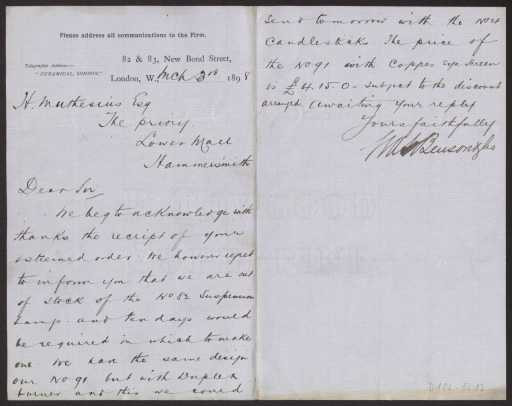 Please address all communications to the Firm.
82 & 83, New Bond Street,
Telegraphic Address—
"CERAMICAL, LONDON."
London, W. Mch 3rd 1898
H. Muthesius Esq
The Priory
Lower Mall
Hammersmith
Dear Sir,
We beg to acknowledge with
thanks the receipt of your
esteemed order. We however regret
to inform you that we are out
of stock of the No 82 Suspension
Lamp and ten days would
be required in which to make
one We have the same design
our No 91 but with Duplex
burner and this we could
send tomorrow with the No 4
Candlesticks. The price of
the No 91 with Copper Eye Screen
is £4.15.0. subject to the discount
arranged Awaiting your reply
Yours faithfully
W A S Benson & Co